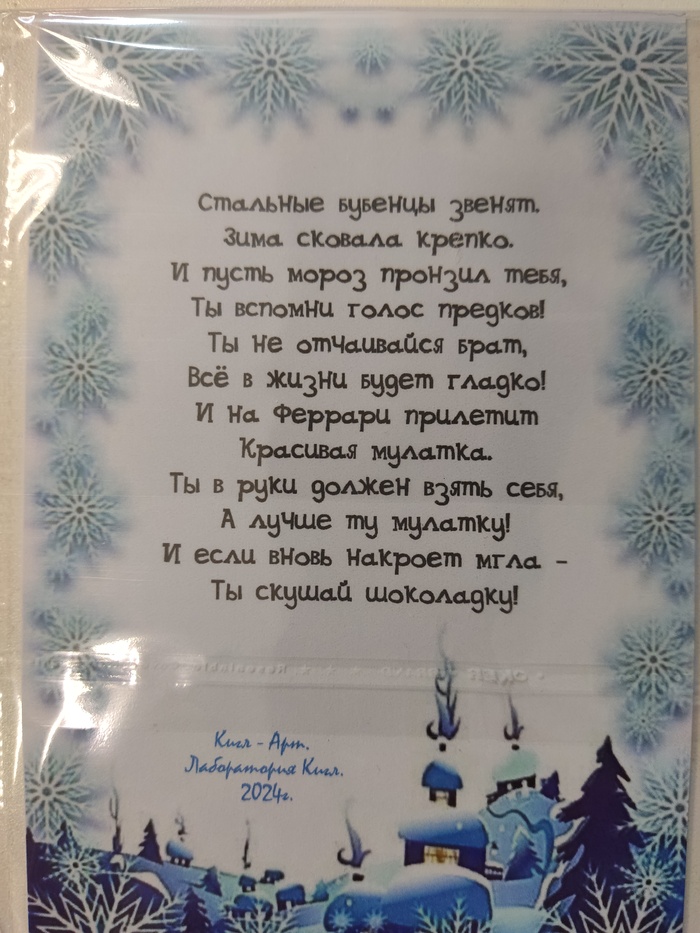 Стальные бубенцы звенят.
Зима сковала крепко.
И пусть мороз пронзил тебя,
Ты вспомни голос предков!
Ты не отчаивайся брат,
Всё в жизни будет гладко!
И на Феррари прилетит
Красивая мулатка.
Ты в руки должен взять себя,
А лучше ту мулатку!
И если вновь накроет мгла -
Ты скушай шоколадку!
Кигл - Арт.
Лаборатория Кигл.
2024г.